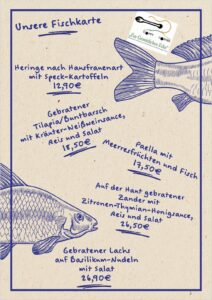 Unsere Fischkarte
Zur Gemütlichen Ecke
Heringe nach Hausfrauenart
mit Speck-Kartoffeln
12,90€
Gebratener
Tilapia/Buntbarsch
mit Kräuter-Weißweinsauce,
Reis und Salat
18,50€
Paella mit
Meerresfrüchten und Fisch
17,50€
Auf der Haut gebratener
Zander mit
Zitronen-Thymian-Honigsauce,
Reis und Salat
26,50€
Gebratener Lachs
auf Basilikum-Nudeln
mit Salat
26,90€